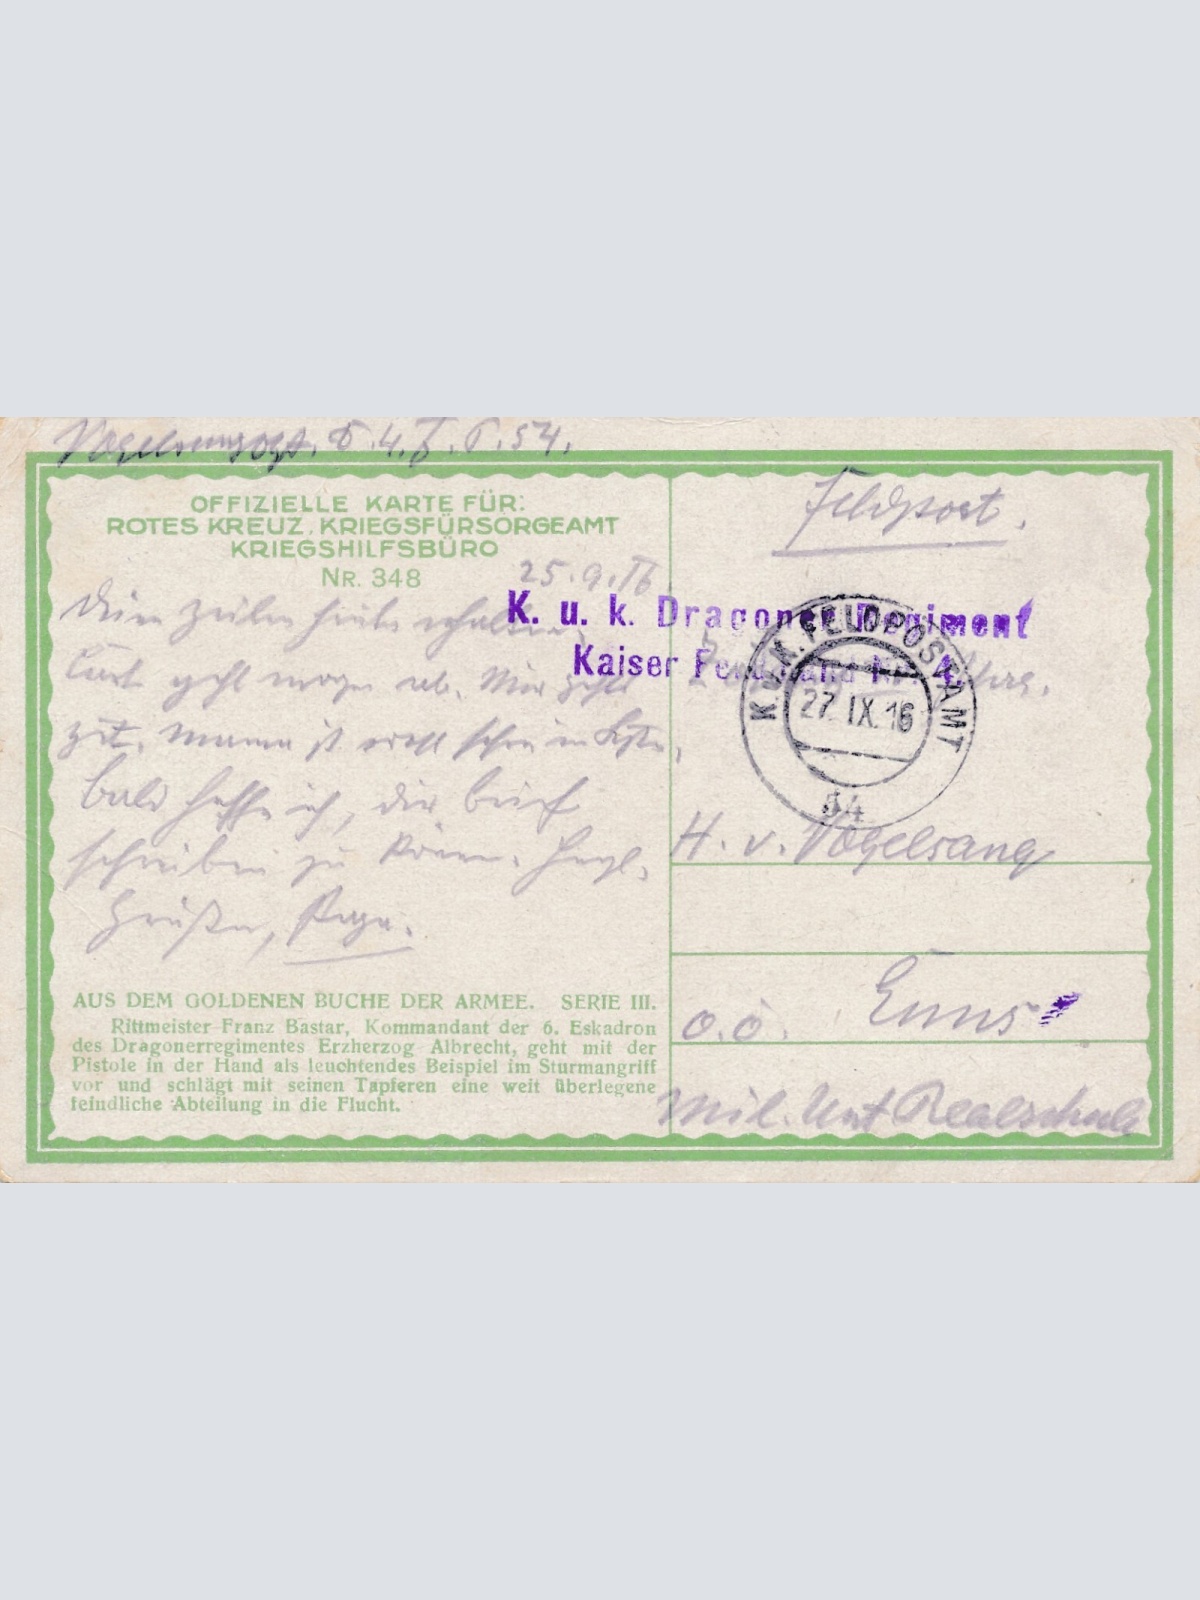 Feldpost.
OFFIZIELLE KARTE FÜR:
ROTES KREUZ, KRIEGSFÜRSORGEAMT
KRIEGSHILFSBÜRO
NR. 348
25.9.16
K. u. k. Dragoner Regiment
Kaiser Ferdinand Nr. 4.
K.u.K. FELDPOSTAMT
27. IX. 16
54
Deine Zeilen heute erhalten.
geht morgen ab. Mir geht's
gut. Mama ist wohl schon in
bald hoffe ich, dir Brief
schreiben zu können. Herzl.
Grüße, Papa.
H. v. Vogelsang
Enns
O.Ö.
Mil. Unt Realschule
AUS DEM GOLDENEN BUCHE DER ARMEE. SERIE III.
Rittmeister Franz Bastar, Kommandant der 6. Eskadron
des Dragonerregimentes Erzherzog Albrecht, geht mit der
Pistole in der Hand als leuchtendes Beispiel im Sturmangriff
vor und schlägt mit seinen Tapferen eine weit überlegene
feindliche Abteilung in die Flucht.